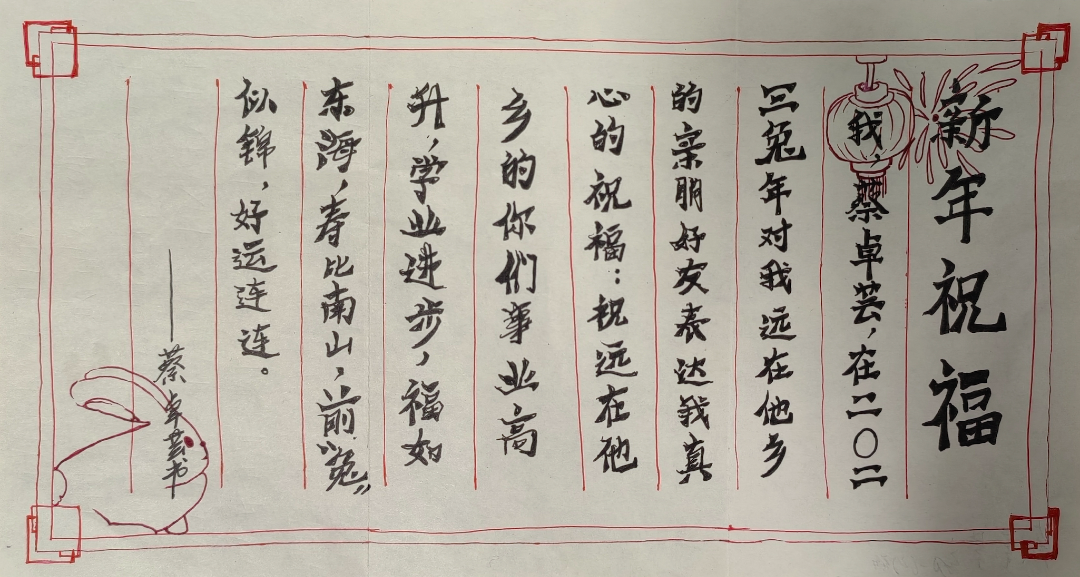 新年祝福
我，蔡卓芸，在二〇二
三兔年对我远在他乡
的亲朋好友表达我真
心的祝福：祝远在他
乡的你们事业高
升，学业进步，福如
东海，寿比南山，前“兔”
似锦，好运连连。
——蔡卓芸书